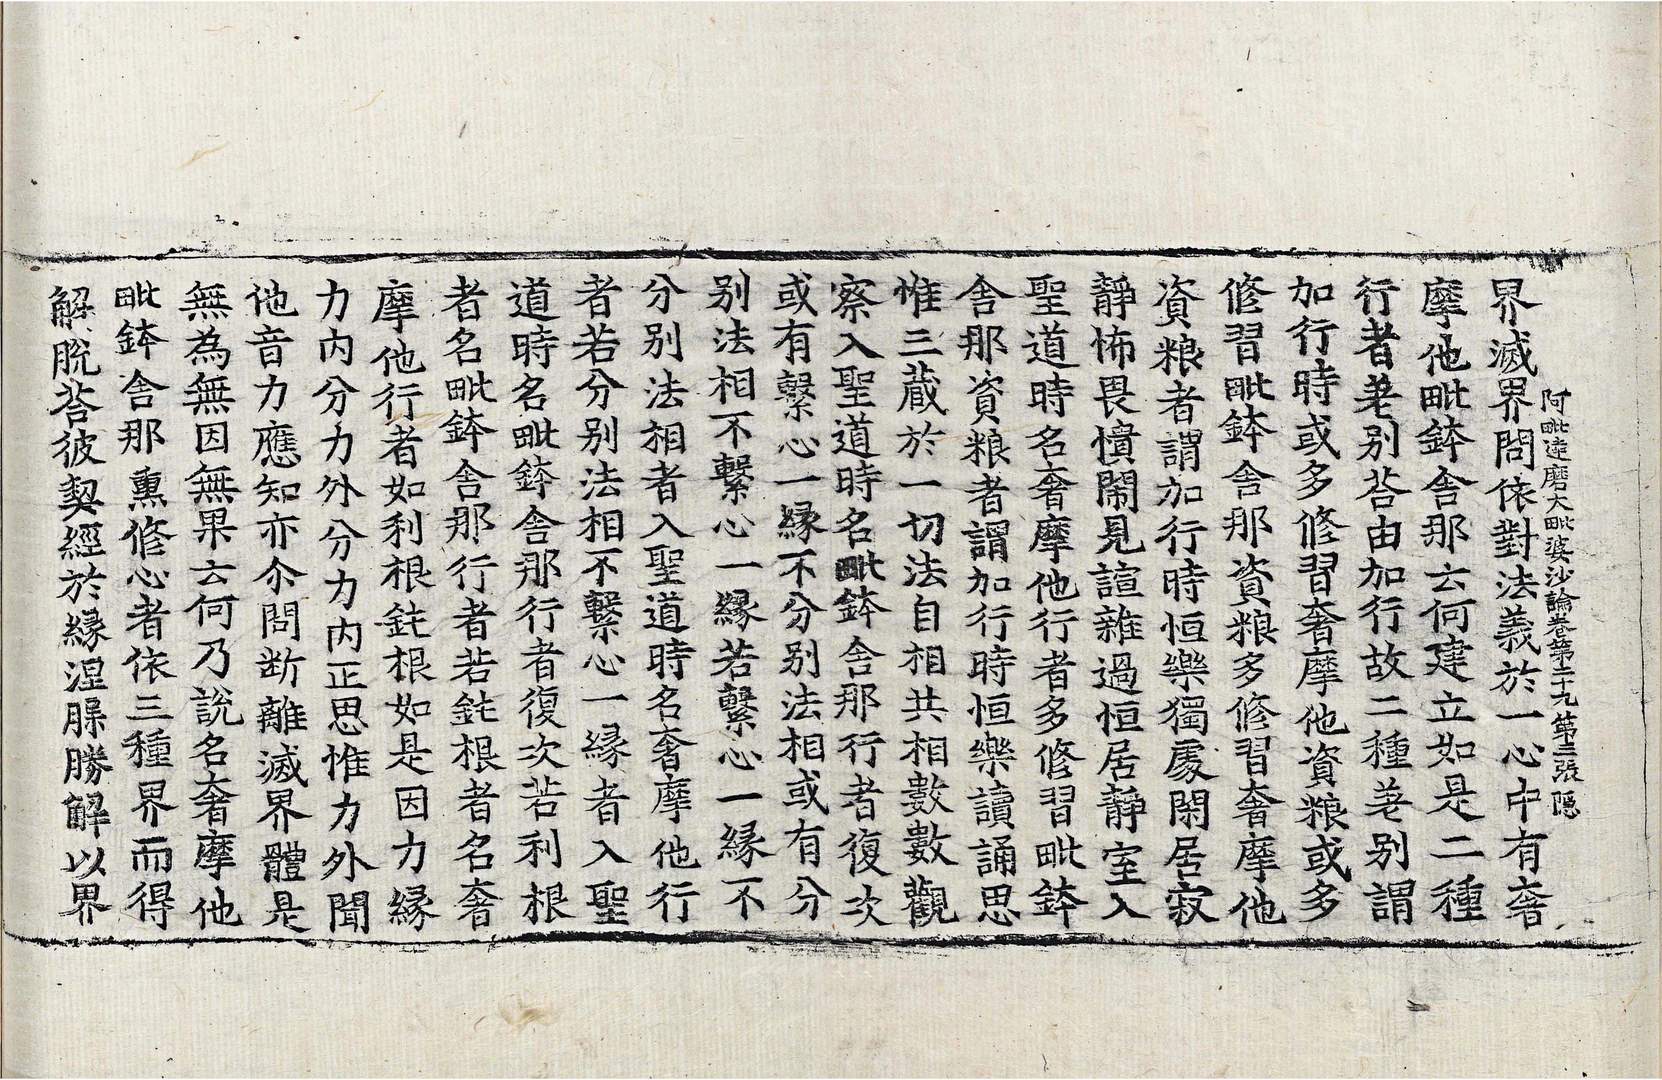 阿毗達磨大毗婆沙論卷第二十九 第三張 隱
界滅界問依對法義於一心中有奢
摩他毗鉢舍那云何建立如是二種
行者差別荅由加行故二種差別謂
加行時或多修習奢摩他資粮或多
修習毗鉢舍那資粮多修習奢摩他
資粮者謂加行時恒樂獨處閑居寂
靜怖畏憒閙見諠雜過恒居靜室入
聖道時名奢摩他行者多修習毗鉢
舍那資粮者謂加行時恒樂讀誦思
惟三藏於一切法自相共相數數觀
察入聖道時名毗鉢舍那行者復次
或有繫心一緣不分別法相或有分
別法相不繫心一緣若繫心一緣不
分別法相者入聖道時名奢摩他行
者若分別法相不繫心一緣者入聖
道時名毗鉢舍那行者復次若利根
者名毗鉢舍那行者若鈍根者名奢
摩他行者如利根鈍根如是因力緣
力內分力外分力內正思惟力外聞
他音力應知亦尒問断離滅界體是
無為無因無果云何乃說名奢摩他
毗鉢舍那熏修心者依三種界而得
解脫荅彼契經於緣涅槃勝解以界